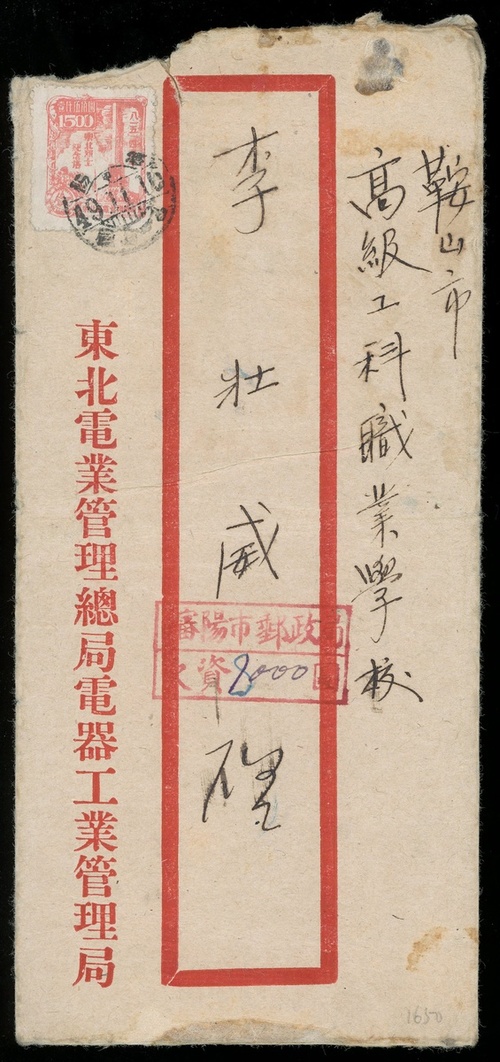 鞍山市
高級工科職業學校
李壯威 啓
瀋陽市郵政局
欠資2000圓
東北電業管理總局電器工業管理局
1500
49.11.16
1650